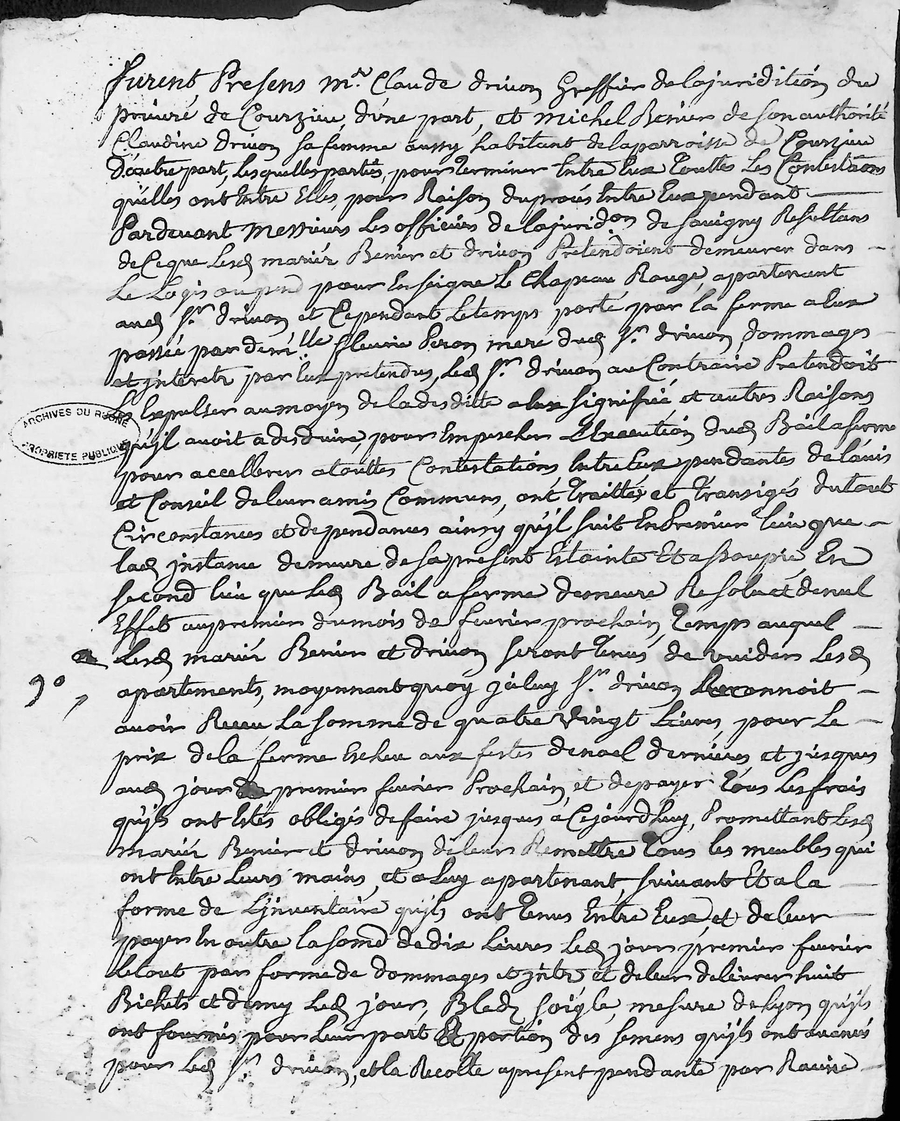 furent Presens mr. Claude drivon Greffier de la juriditión du
prieuré de Courzieu d'une part, et michel Benier de son authorité
Claudine drivon sa femme aussy habitant de la parroisse de Courzieu
d'autre part, Lesquelles parties, pour Terminer Entre Eux Touttes Les Contestaōns
qu'elles ont Entre Elles, pour Raison du procés Entre Eux pendant
Pardevant Messieurs Les officiers de la juridon de savigny Resultans
de Ce que Lesd mariér Benier et drivon Pretendoient demeurer dans
Le Logis ou pend pour Enseigne Le Chapeau Rouge, apartenant
aud sr. drivon et Cependant Le temps porté par la ferme a Eux
passée par demlle fleurie Peron mere dud sr. drivon dommages
et interetz par Eux pretendus, Led sr. drivon au Contraire Pretendoit
Les Expulser au moyen de la desditte a Eux signifiée et autres Raisons
qu'il avoit a desduire, pour Empescher L'Execution dud Bail a ferme
pour accellerer a touttes Contestations Entre Eux pendantes de l'avis
et Conseil de leur amis Communs, ont Traittés et Transigés du tout
Circonstances et dependances ainsy qu'il suit En Premier lieu que
lad jnstance demeure de sa present Estainte Et assoupie, En
second lieu que Led Bail a ferme demeure Resolu et de nul
Effet au premier du mois de fevrier prochain, Temps auquel
Lesd mariér Benier et drivon seront Tenus de vuider Lesd
9o,
apartements, moyennant quoy jceluy sr. drivon Reconnoit
avoir Receu La somme de quatre vingt Livres, pour Le
prix de la ferme Escheu aux festes de noel dernieres et jusques
aud jour premier fevrier Prochain, et de payer Tous Les frais
qu'ils ont Estés obligés de faire jusques a Cejourdhuy, Promettant Lesd
mariér Benier et drivon de leur Remettre Tous les meubles qui
ont Entre Leurs mains, et a Luy apartenant, suivant Et a la
forme de L'jnventaire qu'ils ont Tenus Entre Eux, et de leur
payer En outre la somē de dix Livres Led jour premier fevrier
Le tout par forme de dommages et jntrz et de leur delivrer huit
Bichets et demy Led jour, Bled soigle, mesure de Lyon qu'ils
ont fournis pour Leur part Et portion des semens qu'ils ont avancés
pour Led sr. drivon, et la Recolte apresent pendante par Racine
ARCHIVES DU RHONE
PROPRIETE PUBLIQUE